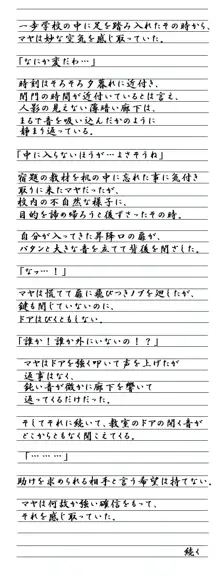 一歩学校の中に足を踏み入れたその時から、
マヤは妙な空気を感じ取っていた。
「なにか変だわ…」
時刻はそろそろ夕暮れに近付き、
閉門の時間が近付いているとは言え、
人影の見えない薄暗い廊下は、
まるで音を吸い込んだかのように
静まり返っている。
「中に入らないほうが…よさそうね」
宿題の教材を机の中に忘れた事に気付き
取りに来たマヤだったが、
校内の不自然な様子に、
目的を諦め帰ろうと後ずさったその時。
自分が入ってきた昇降口の扉が、
バタンと大きな音を立てて背後を閉ざした。
「なっ…！」
マヤは慌てて扉に飛びつきノブを廻したが、
鍵も閉じていないのに、
ドアはびくともしない。
「誰か！誰か外にいないの！？」
マヤはドアを強く叩いて声を上げたが
返事はなく、
鈍い音が微かに廊下を響いて
返ってくるだけだった。
そしてそれに続いて、教室のドアの開く音が
どこからともなく聞こえてくる。
「………」
助けを求められる相手と言う希望は持てない。
マヤは何故か強い確信をもって、
それを感じ取っていた。
続く